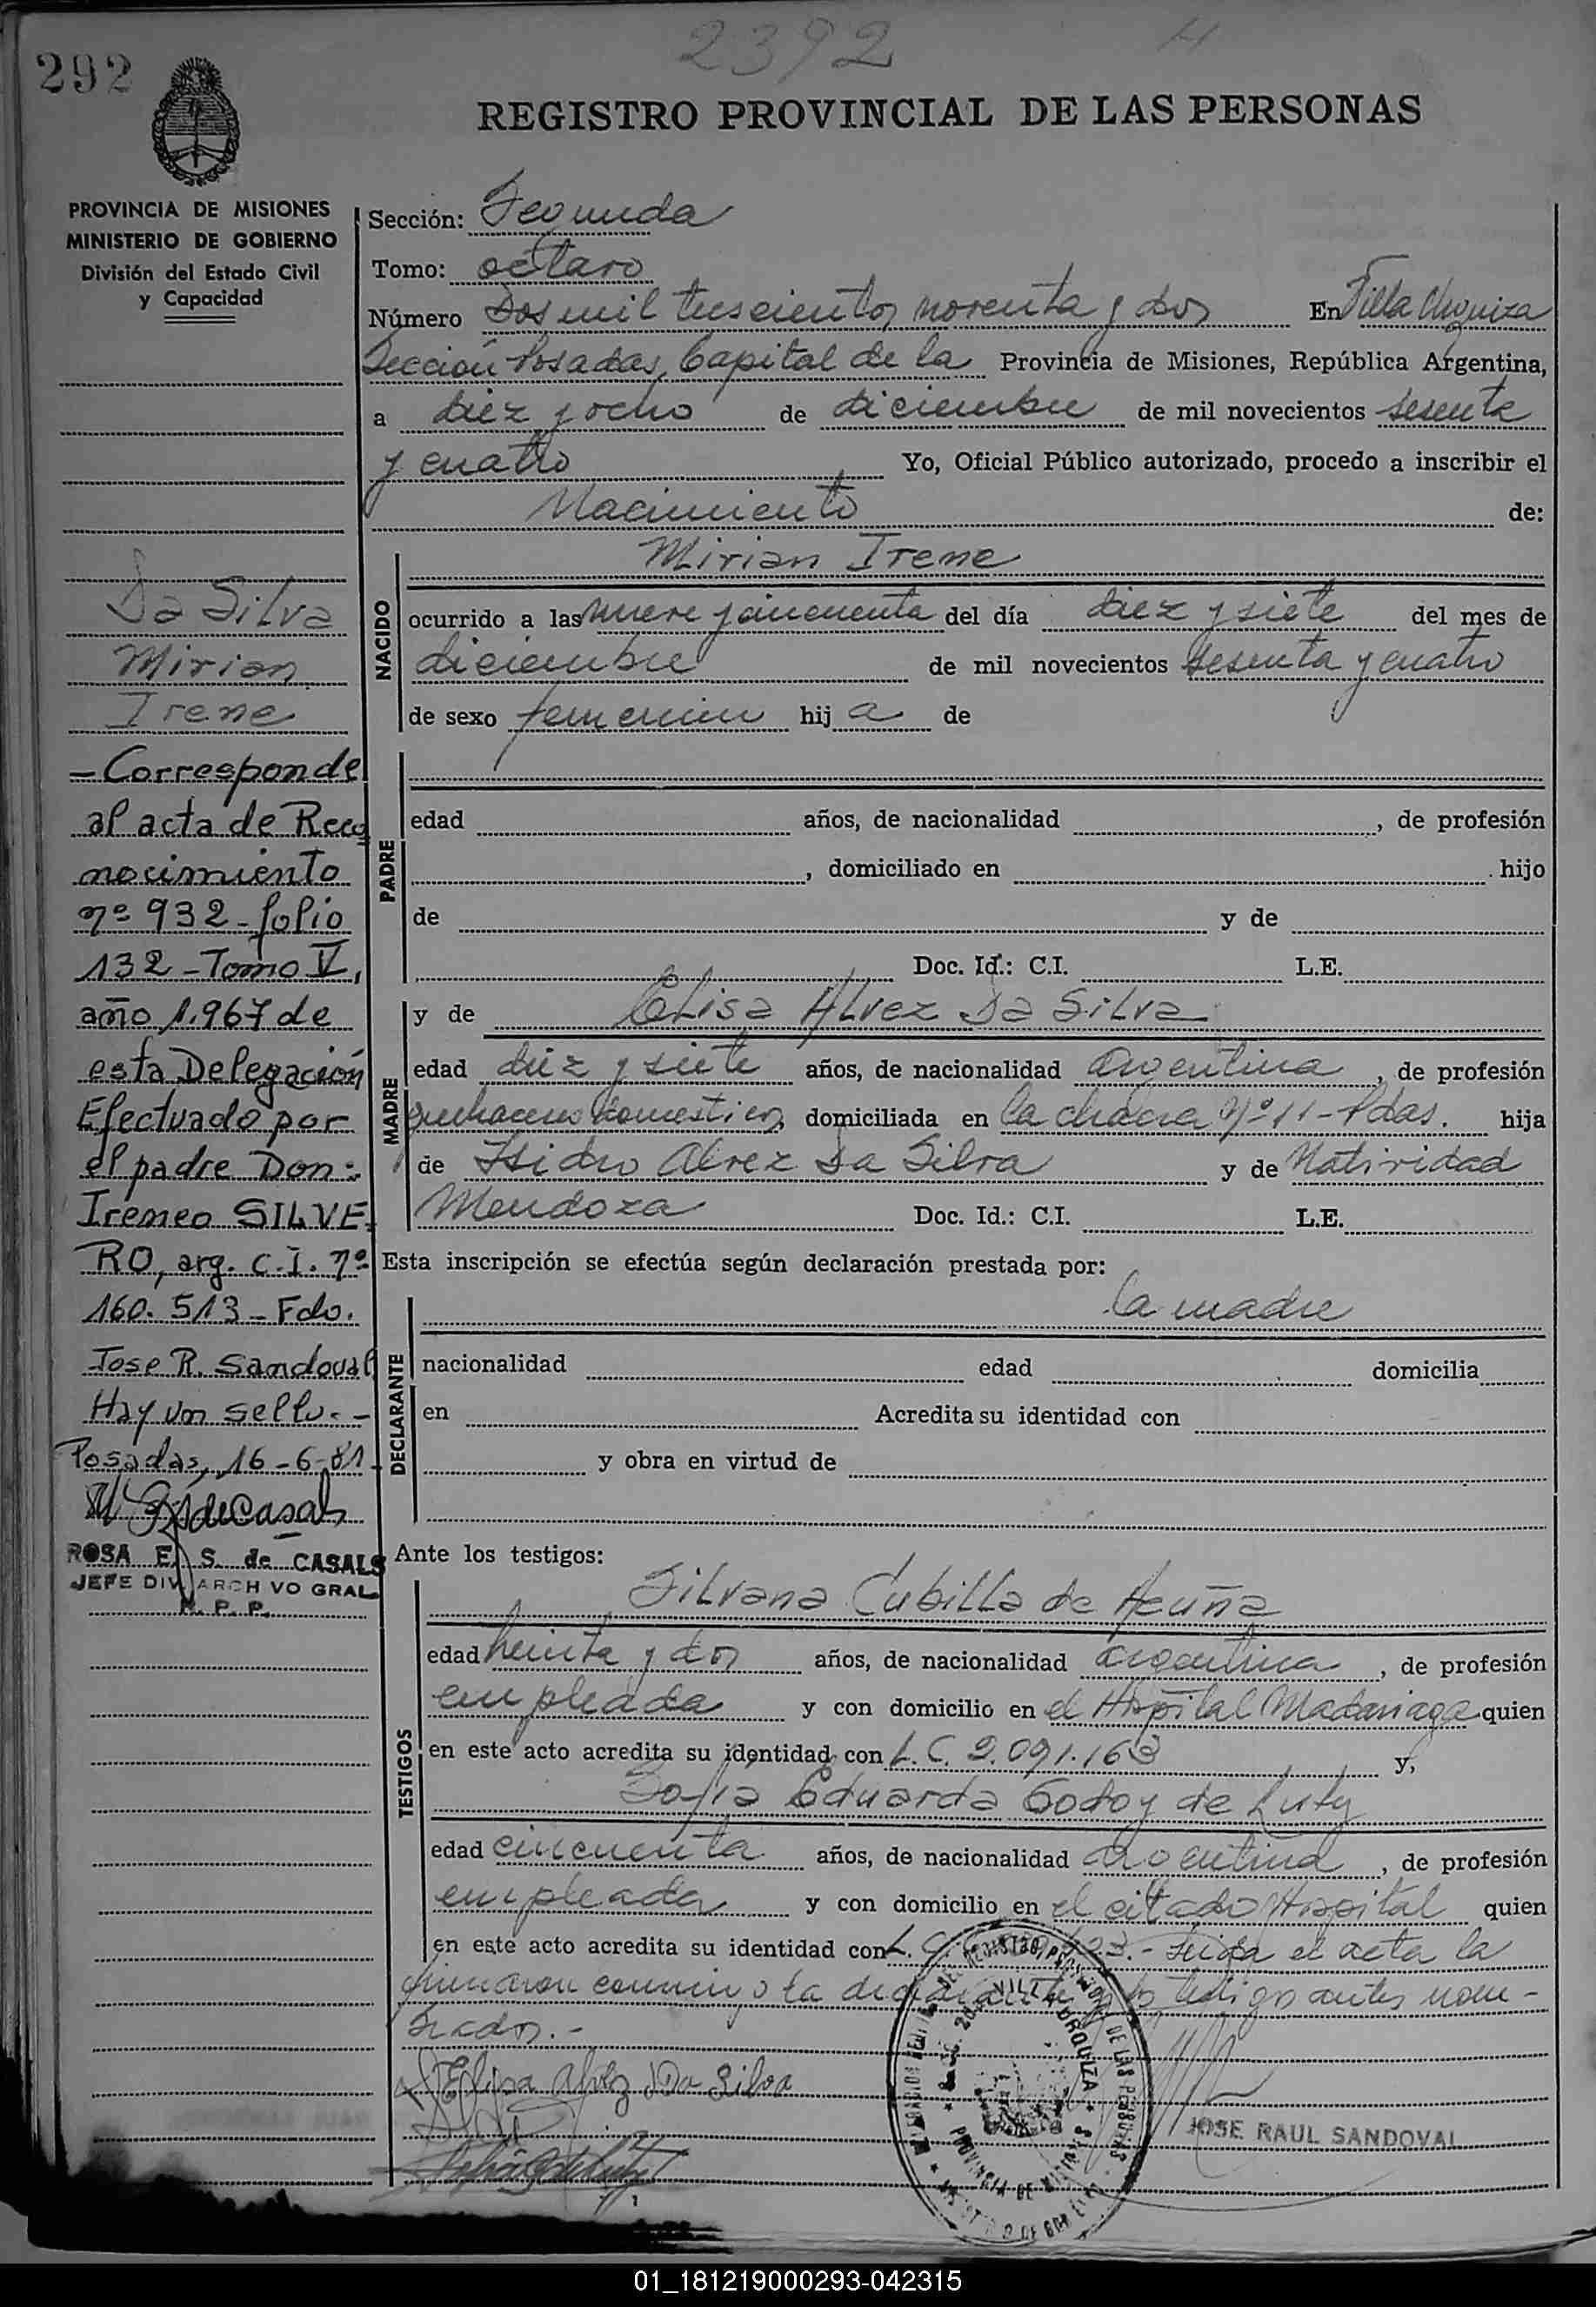 2392
292
REGISTRO PROVINCIAL DE LAS PERSONAS
PROVINCIA DE MISIONES
MINISTERIO DE GOBIERNO
División del Estado Civil
y Capacidad
Sección: Segunda
Tomo: octavo
Número Dos mil trescientos noventa y dos En Villa Urquiza
Sección Posadas, Capital de la Provincia de Misiones, República Argentina,
a diez y ocho de diciembre de mil novecientos sesenta
y cuatro Yo, Oficial Público autorizado, procedo a inscribir el
Nacimiento de:
Da Silva
Mirian
Irene
- Corresponde
al acta de Reco
nocimiento
nº 932 - folio
132 - Tomo V,
año 1.967 de
esta Delegación
Efectuado por
el padre Don:
Ireneo SILVE-
RO, arg. C.I. nº
160.513 - Fdo.
Jose R. Sandoval
Hay un sello.-
Posadas, 16-6-81-
ROSA E. S. de CASALS
JEFE DIV ARCH VO GRAL
R. P. P.
NACIDO
Mirian Irene
ocurrido a las nueve y cincuenta del día diez y siete del mes de
diciembre de mil novecientos sesenta y cuatro
de sexo femenino hij a de
PADRE
edad años, de nacionalidad , de profesión
, domiciliado en hijo
de y de
Doc. Id.: C.I. L.E.
MADRE
y de Elisa Alvez Da Silva
edad diez y siete años, de nacionalidad argentina , de profesión
quehaceres domesticos, domiciliada en la chacra Nº 11 - Pdas. hija
de Isidro Alvez Da Silva y de Natividad
Mendoza Doc. Id.: C.I. L.E.
Esta inscripción se efectúa según declaración prestada por:
la madre
DECLARANTE
nacionalidad edad domicilia
en Acredita su identidad con
y obra en virtud de
Ante los testigos:
TESTIGOS
Silvana Cubilla de Acuña
edad treinta y dos años, de nacionalidad argentina , de profesión
empleada y con domicilio en el Hospital Madariaga quien
en este acto acredita su identidad con L.C. 2.091.163 y,
Sofia Eduarda Godoy de Luty
edad cincuenta años, de nacionalidad argentina , de profesión
empleada y con domicilio en el citado Hospital quien
en este acto acredita su identidad con L.C. Leida el acta la
firmaron conmigo la declarante y los testigos antes nom-
brados.-
Elisa Alvez Da Silva
VILLA URQUIZA
PROVINCIA DE MISIONES
JOSE RAUL SANDOVAL
01_181219000293-042315